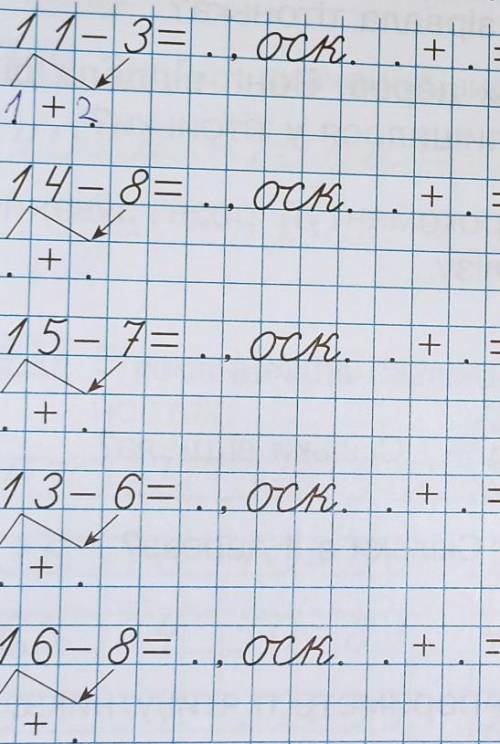 11-3=., оск. .+.=
1+2
14-8=., оск. .+.=
.+.
15-7=., оск. .+.=
.+.
13-6=., оск. .+.=
.+.
16-8=., оск. .+.=
.+.